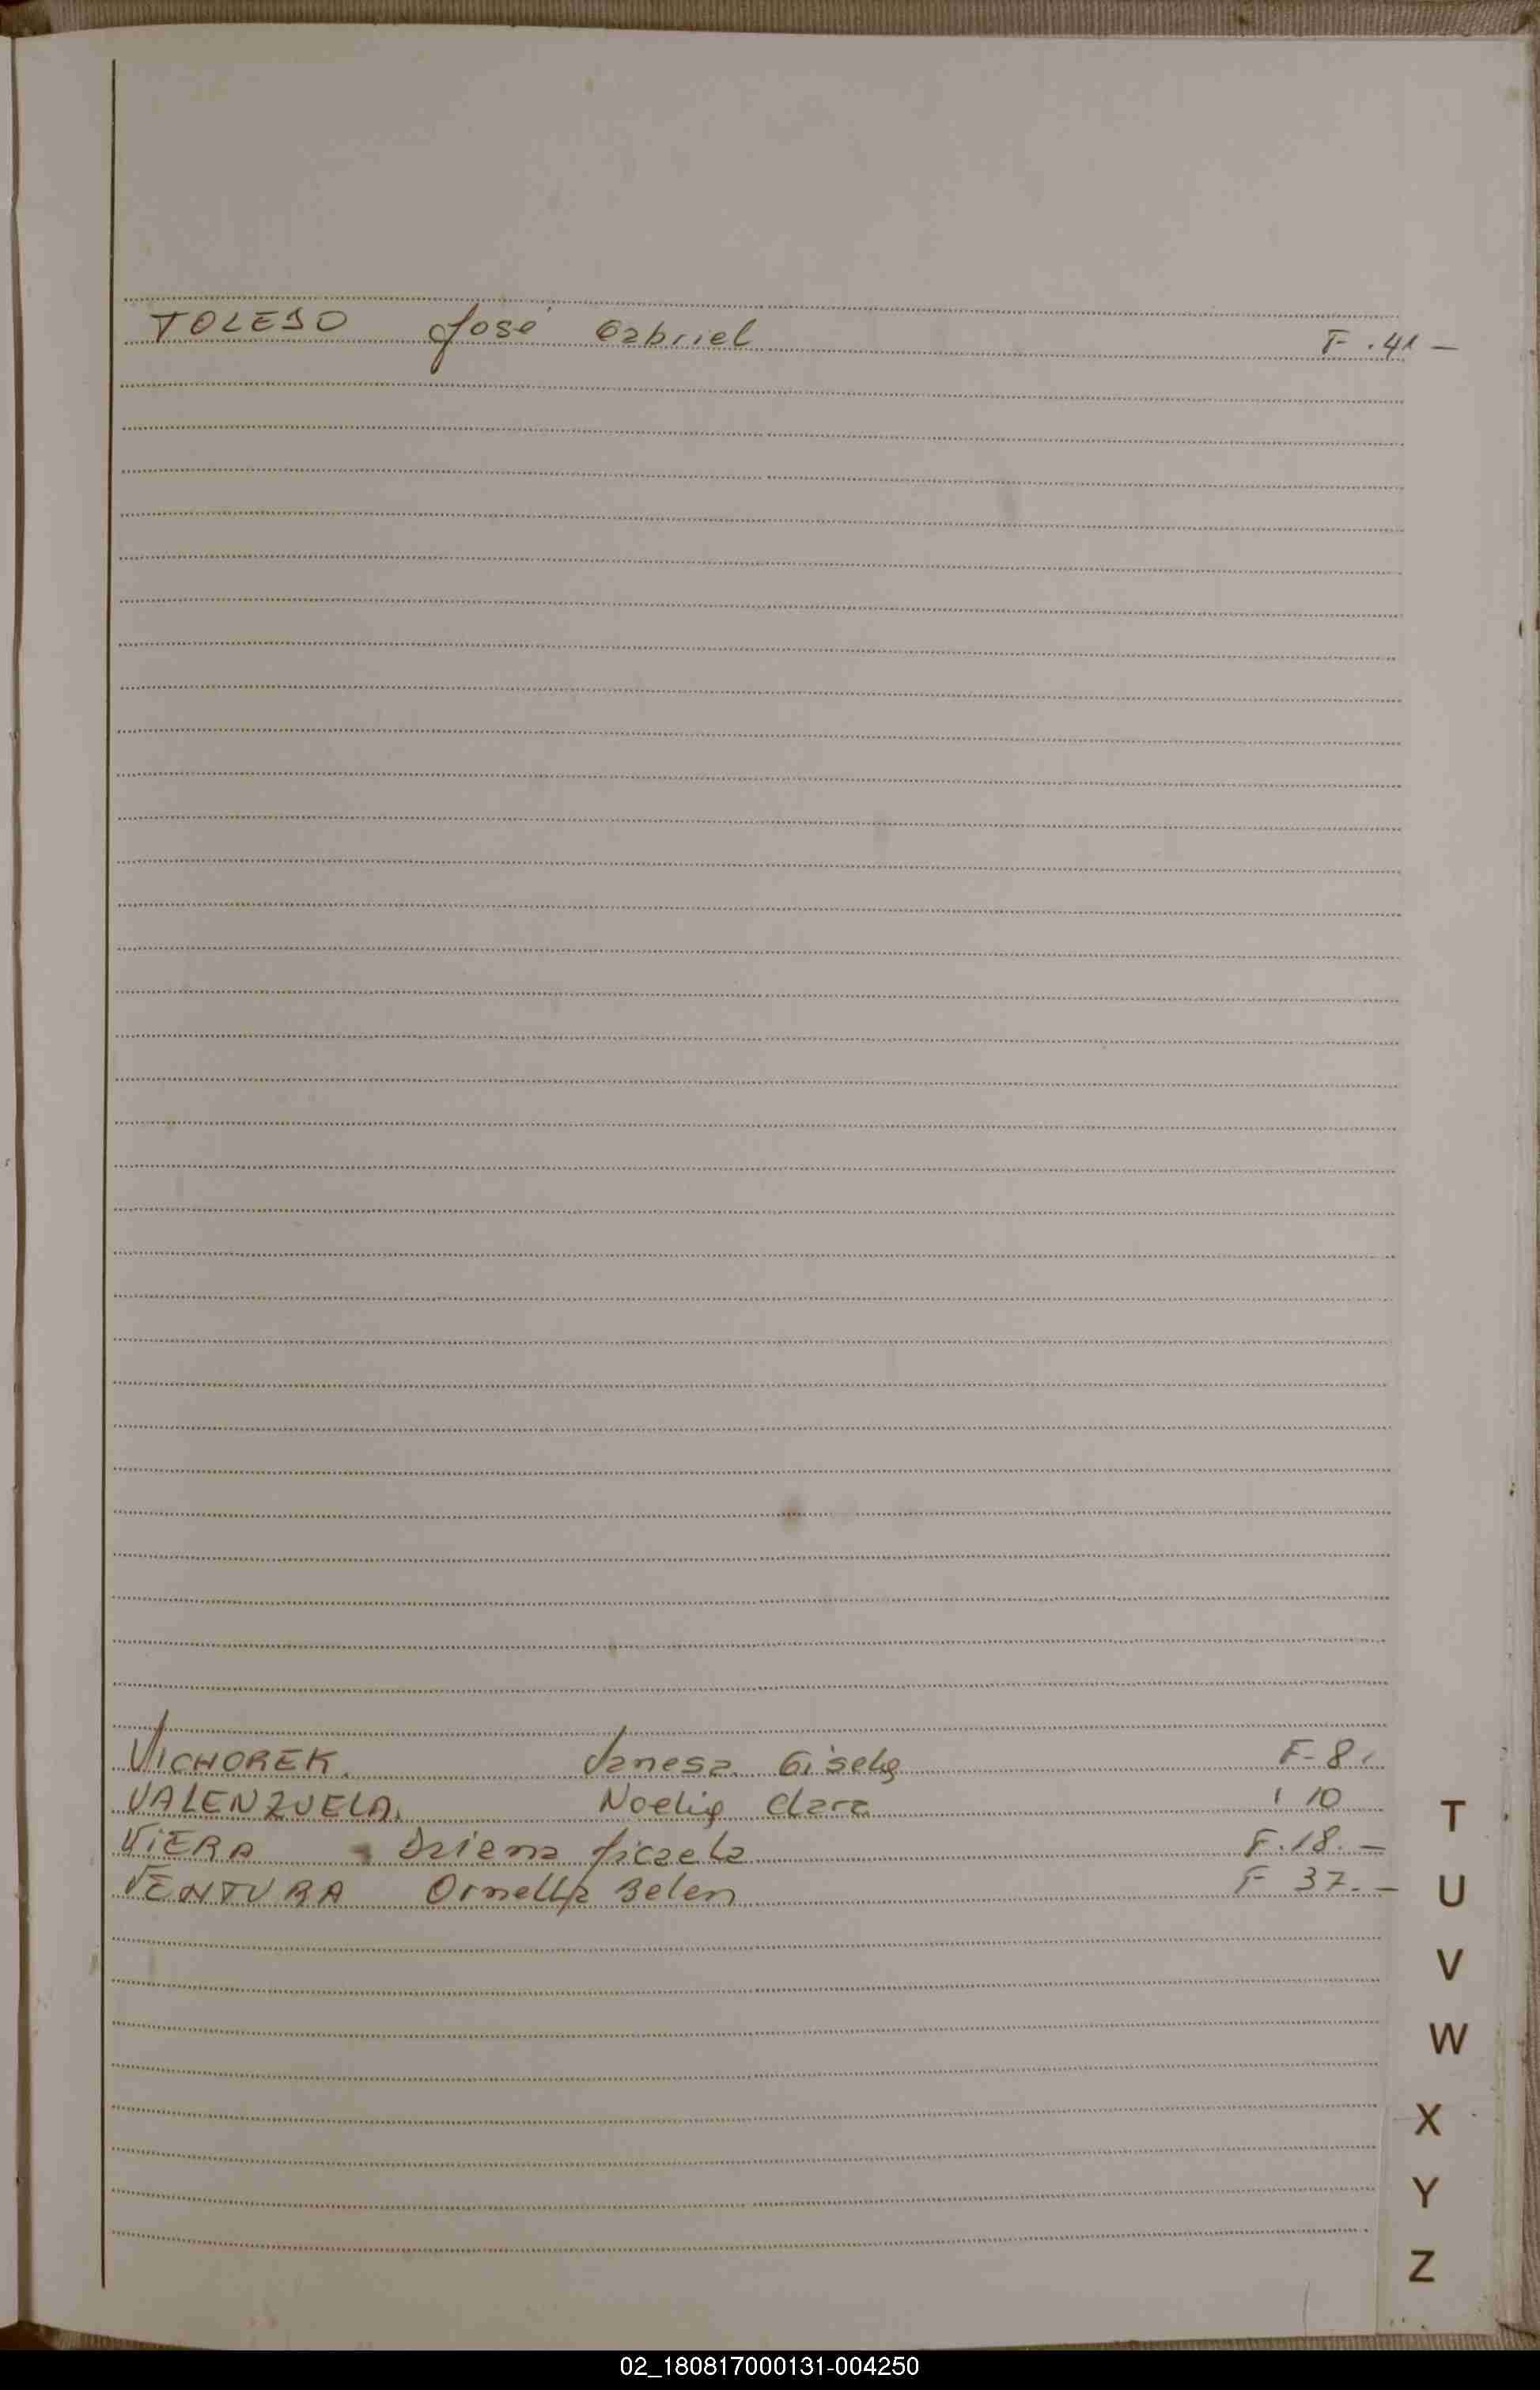 TOLEDO José Gabriel F. 41 —
VICHOREK. Vanesa Gisela F- 8.
VALENZUELA. Noelia Clara " 10
VIERA Daiena Micaela F. 18. —
VENTURA Ornella Belen F 37. —
T
U
V
W
X
Y
Z
02_180817000131-004250